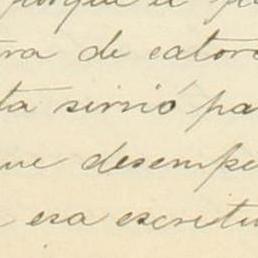 porque el p
ra de cator
ta sirvió pa
ue desempe
esa escritu